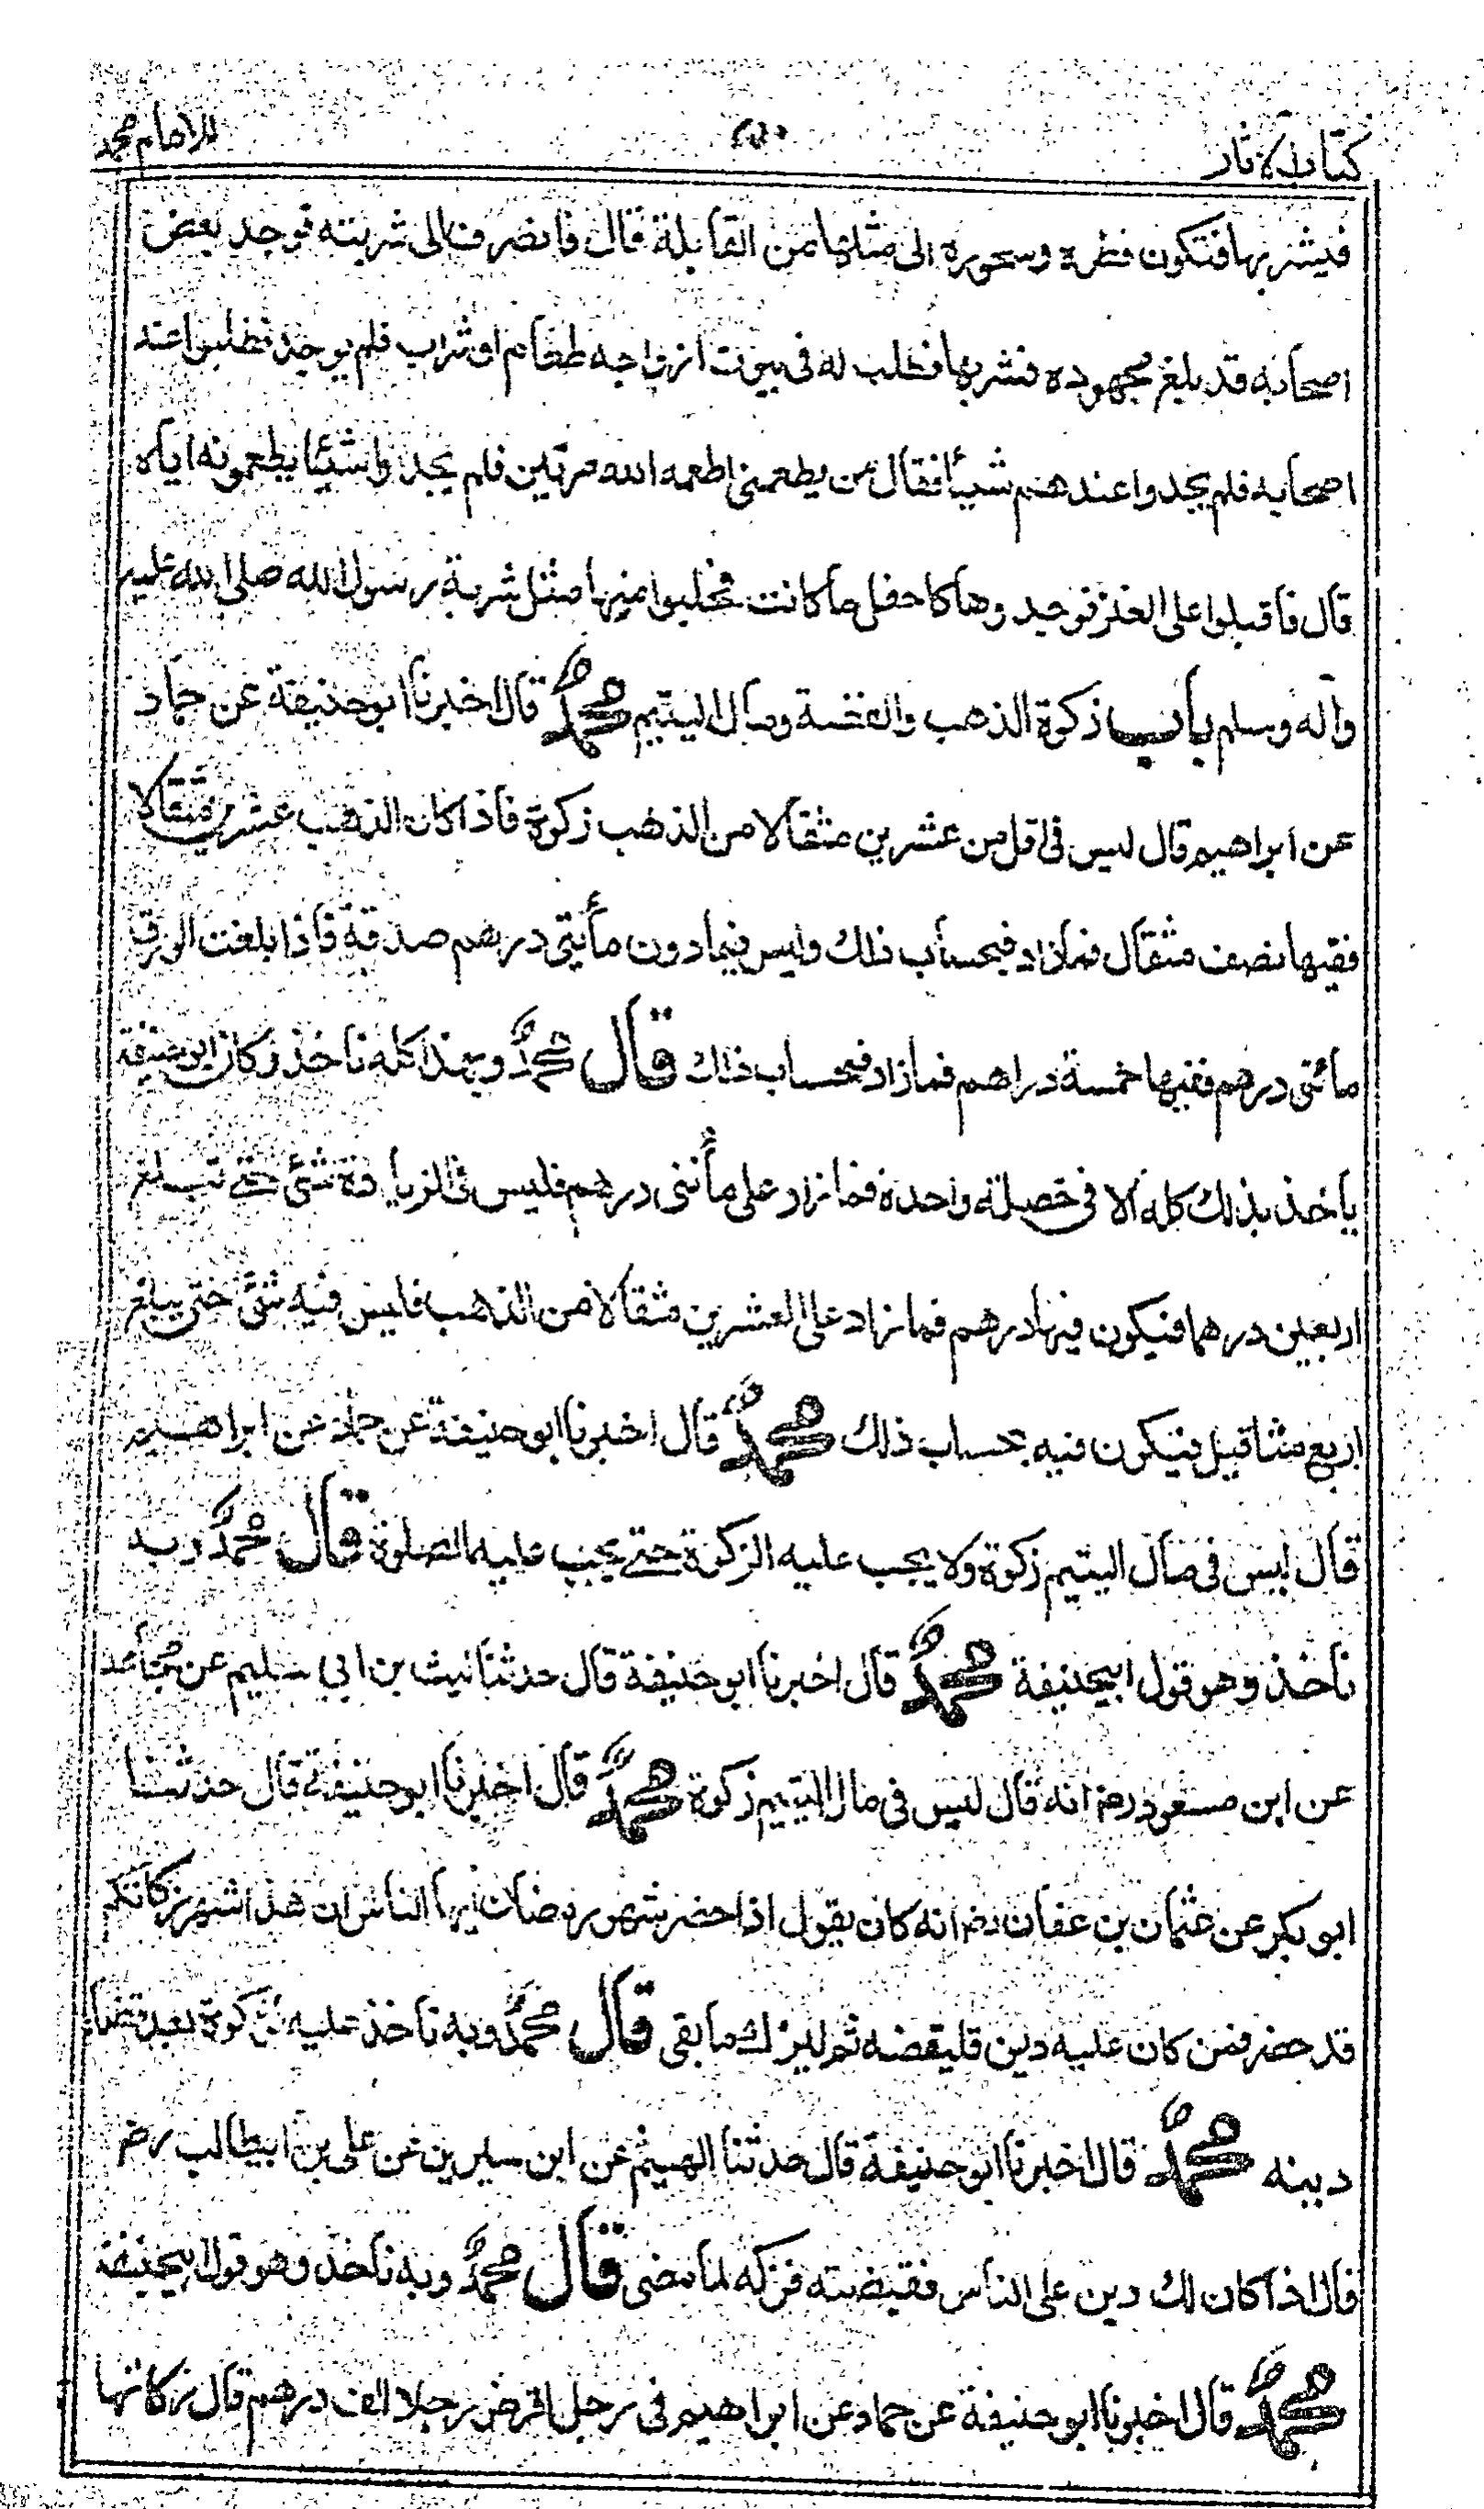 كتاب الاثار للامام محمد
فيشربها فتكون فطره وسحوره الى مثلها من القابلة قال فانصرفنا الى شربته فوجد بعض
اصحابه قد بلغ مجهوده فشربها فطلب له فى بيوت ازواجه طعام او شراب فلم يوجد فطلبوا عند
اصحابه فلم يجدوا عندهم شيئا فقال من يطعمنى اطعمه الله مرتين فلم يجدوا شيئا يطعمونه اياه
قال فاقبلوا على العنز فوجدوها كاحفل ما كانت فحلبوا منها مثل شربة رسول الله صلى الله عليه
واٰله وسلم باب زكوة الذهب والفضة ومال اليتيم محمدؒ قال اخبرنا ابو حنيفة عن حماد
عن ابراهيم قال ليس فى اقل من عشرين مثقالا من الذهب زكوة فاذا كان الذهب عشرين مثقالا
ففيها نصف مثقال فما زاد فبحساب ذلك وليس فيما دون مأيتى درهم صدقة فاذا بلغت الورق
مائتى درهم ففيها خمسة دراهم فما زاد فبحساب ذلك قال محمدؒ وبهذا كله ناخذ وكان ابو حنيفة
ياخذ بذلك كله الا فى خصلة واحدة فما زاد على مأتنى درهم فليس فى الزيادة شئ حتى تبلغ
اربعين درهما فيكون فيها درهم فما زاد على العشرين مثقالا من الذهب فليس فيه شئ حتى يبلغ
اربع مثاقيل فيكون فيه بحساب ذلك محمدؒ قال اخبرنا ابو حنيفة عن حماد عن ابراهيم
قال ليس فى مال اليتيم زكوة ولا يجب عليه الزكوة حتى يجب عليه الصلوة قال محمدؒ وبه
ناخذ وهو قول ابيحنيفة محمدؒ قال اخبرنا ابو حنيفة قال حدثنا ليث بن ابى سليم عن مجاهد
عن ابن مسعود رضـ انه قال ليس فى مال اليتيم زكوة محمدؒ قال اخبرنا ابو حنيفة قال حدثنا
ابو بكر عن عثمان بن عفان رضـ انه كان يقول اذا حضر شهر رمضان ايها الناس ان هذا شهر زكاتكم
قد حضر فمن كان عليه دين فليقضه ثم ليزك ما بقى قال محمدؒ وبه ناخذ عليه زكوة بعد قضاء
دينه محمدؒ قال اخبرنا ابو حنيفة قال حدثنا الهيثم عن ابن سيرين عن على بن ابيطالب رضـ
قال اذا كان لك دين على الناس فقبضته فزكه لما مضى قال محمدؒ وبه ناخذ وهو قول ابيحنيفة
محمدؒ قال اخبرنا ابو حنيفة عن حماد عن ابراهيم فى رجل اقرض رجلا الف درهم قال زكاتها